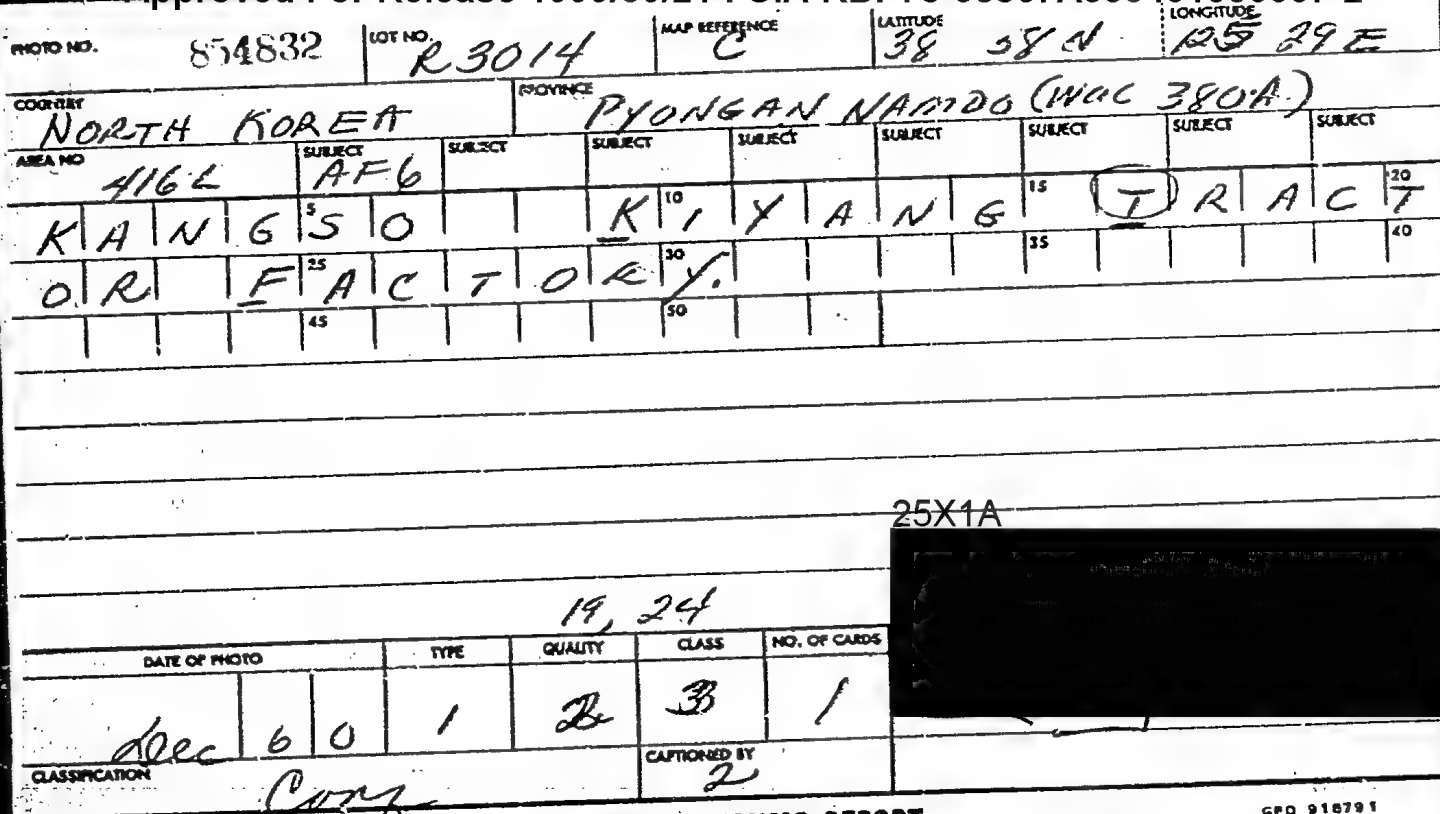 PHOTO NO. 854832 LOT NO. R3014 MAP REFERENCE C LATITUDE 38 58 N LONGITUDE 125 29 E
COUNTRY NORTH KOREA PROVINCE PYONGAN NAMDO (WAC 380A)
AREA NO 416L SUBJECT AF6 SUBJECT SUBJECT SUBJECT SUBJECT SUBJECT SUBJECT SUBJECT
KANG 5 SO K 10 IYANG 15 TRAC 20 T
OR F 25 ACTOR 30 Y. 35 40
45 50
25X1A
19, 24
DATE OF PHOTO TYPE QUALITY CLASS NO. OF CARDS
Dec 60 1 2 3 1
CLASSIFICATION CAPTIONED BY 2
REPORT GPO 918791